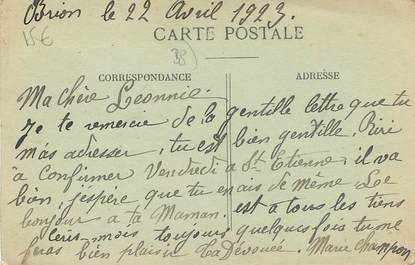 Brion le 22 Avril 1923.
15€
CARTE POSTALE
38)
CORRESPONDANCE
ADRESSE
Ma chère Leonnie.
Je te remercie de la gentille lettre que tu
m'as adresser, tu est bien gentille. Riri
à confirmer Vendredi a St Etienne, il va
bien, j'espère que tu en ais de même Le
bonjour a ta Maman. est a tous les tiens
Ceris mois toujours quelques fois tu me
feras bien plaisir Ta Dévouée. Marie